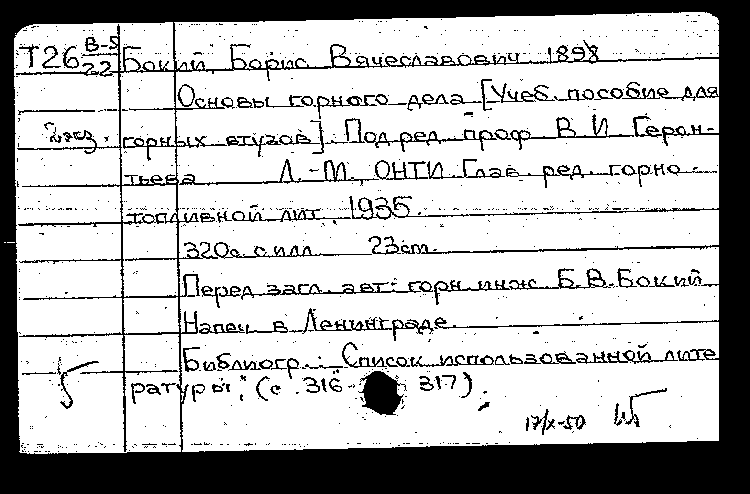 Т26 В-5/22 Бокий, Борис Вячеславович 1898
Основы горного дела [Учеб. пособие для
2экз. горных втузов]. Под ред. проф В. И. Герон-
тьева Л.-М., ОНТИ Глав. ред. горно-
топливной лит, 1935.
320с. с илл 23см.
Перед загл. авт: горн. инж Б. В. Бокий
Напеч в Ленинграде.
Библиогр.: "Список использованной лите
ратуры", (с. 316-317).
17/X-50